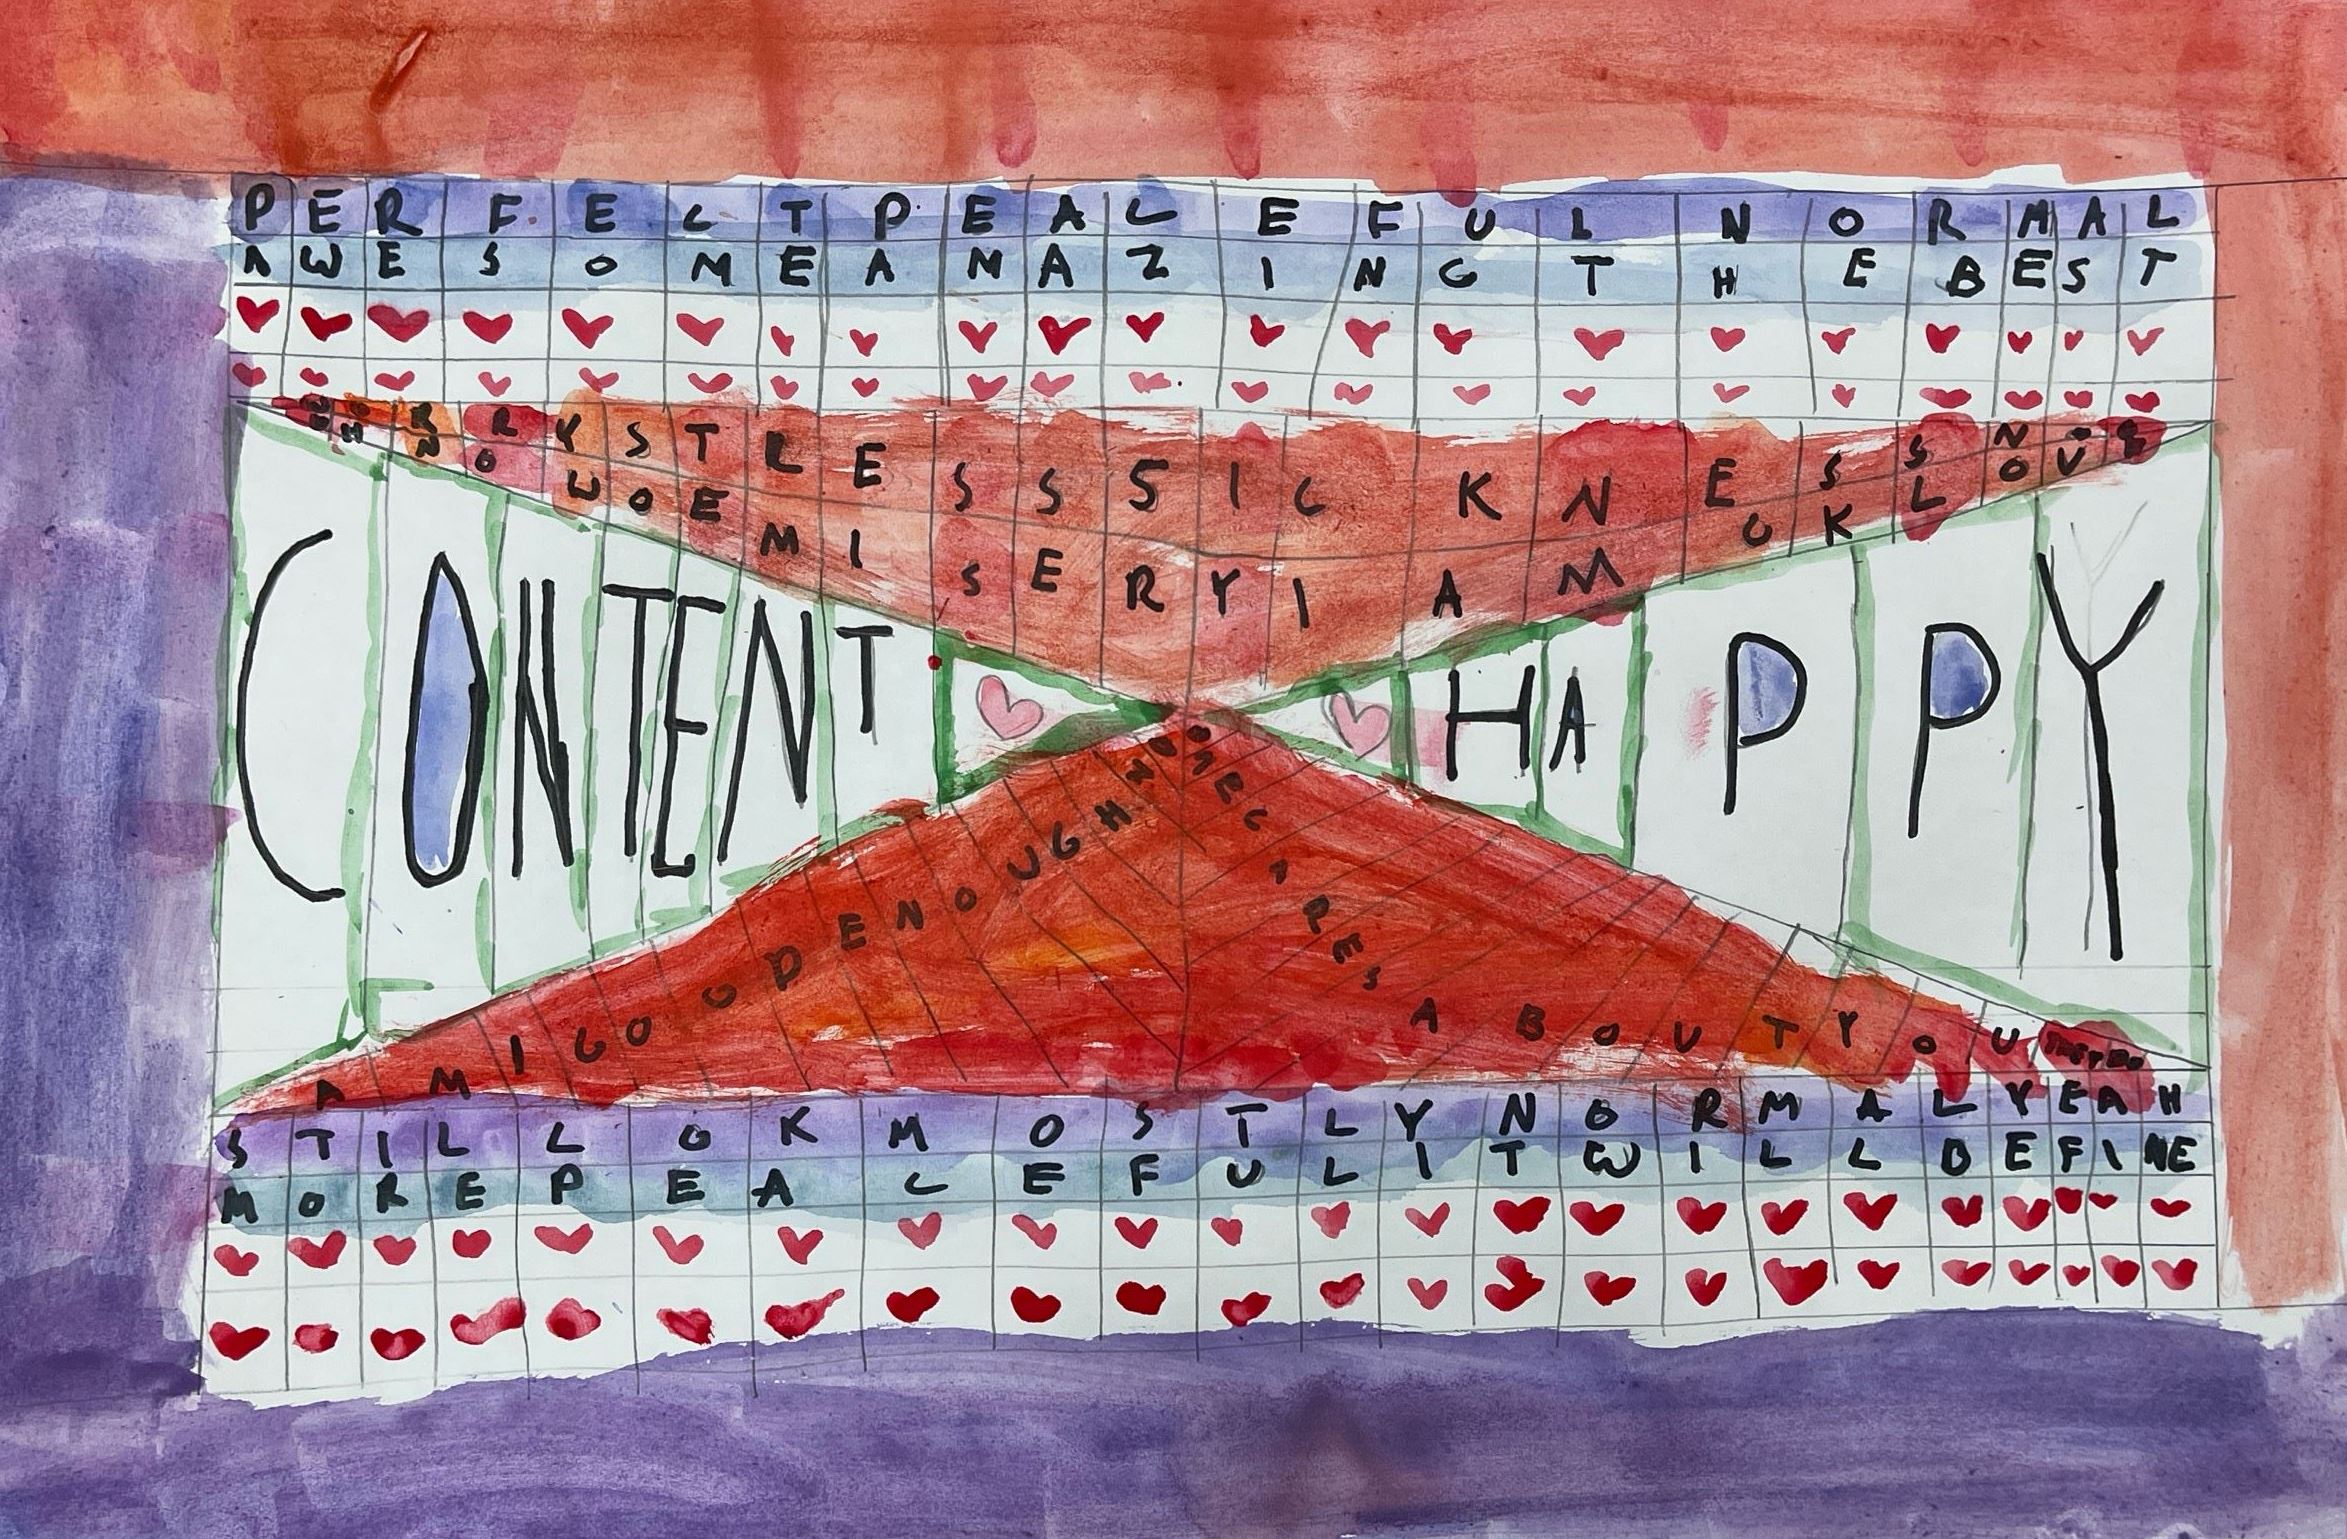 PERFECTPEACEFULNORMAL
AWESOMEAMAZINGTHEBEST
WORRYSTRESSSICKNESS
OHNOWOEMISERYIAM
CONTENT HAPPY
AMIGOODENOUGHNOONECARESABOUTYOUTHEYDO
STILLOKMOSTLYNORMALYEAH
MOREPEACEFULITWILLBEFINE